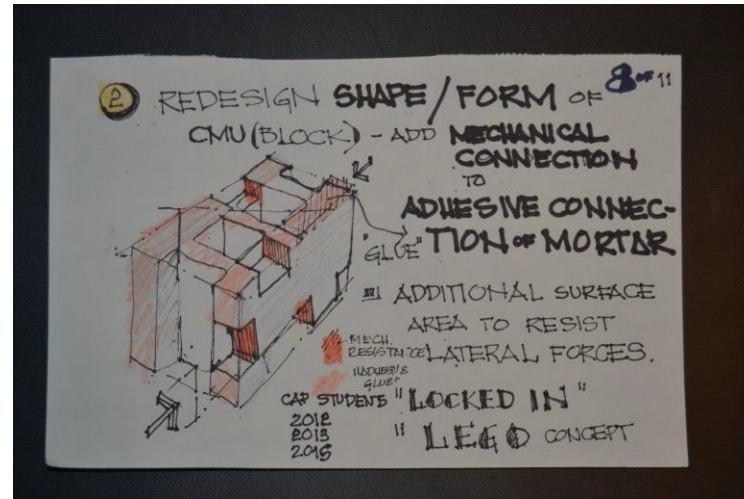 2 REDESIGN SHAPE/FORM OF
8 OF 11
CMU (BLOCK) - ADD MECHANICAL
CONNECTION
TO
ADHESIVE CONNEC-
"GLUE" TION OF MORTAR
ADDITIONAL SURFACE
AREA TO RESIST
LATERAL FORCES.
MECH.
RESISTANCE
"ADHESIVE
GLUE"
CAP STUDENTS "LOCKED IN"
2012
2013
2015
" LEGO CONCEPT